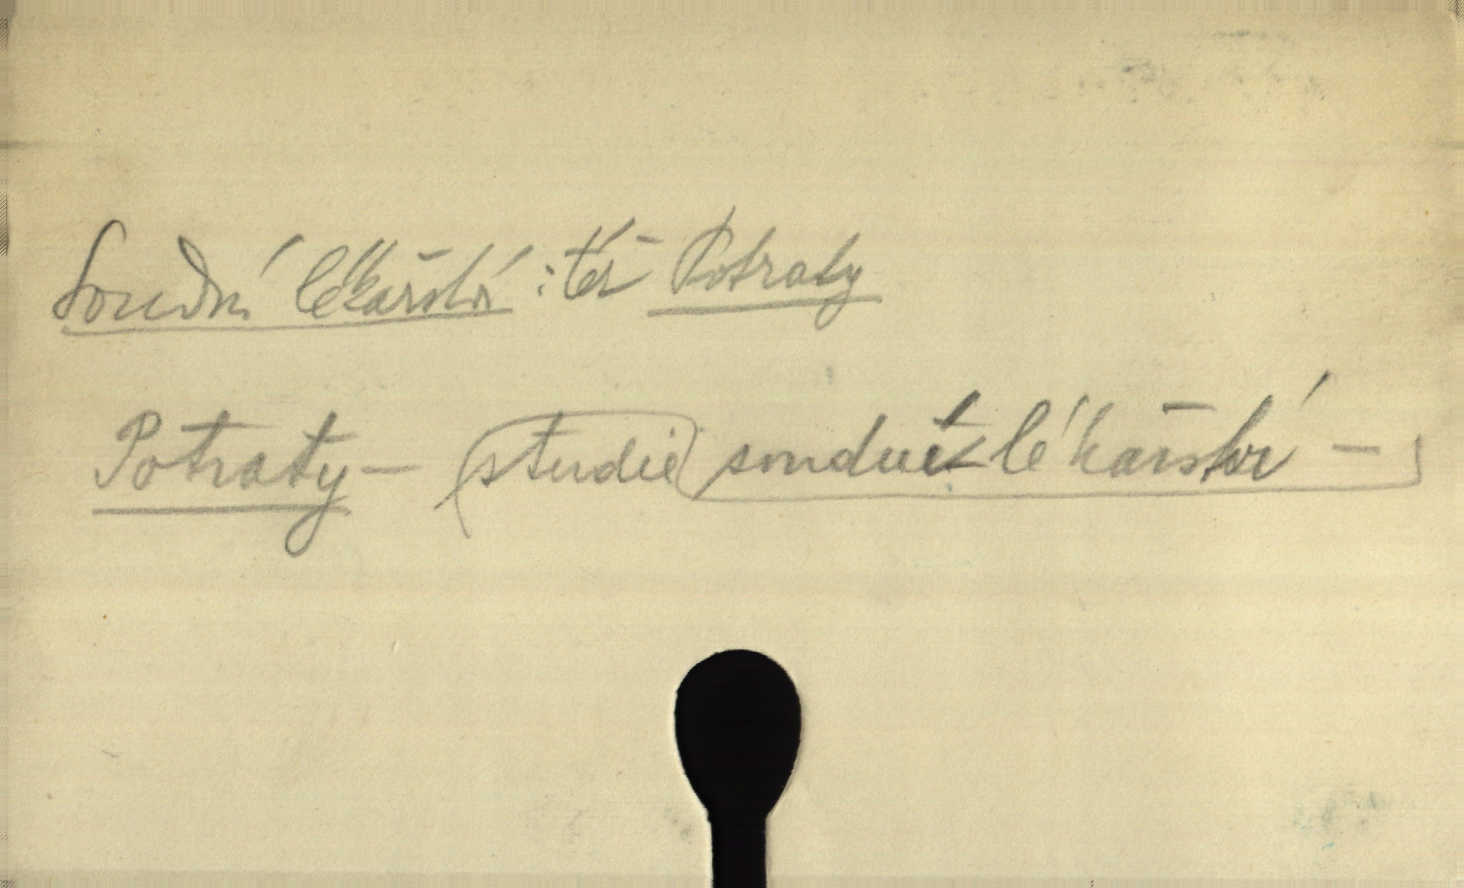 Soudní lékařství: též Potraty
Potraty - studie soudně lékařství -